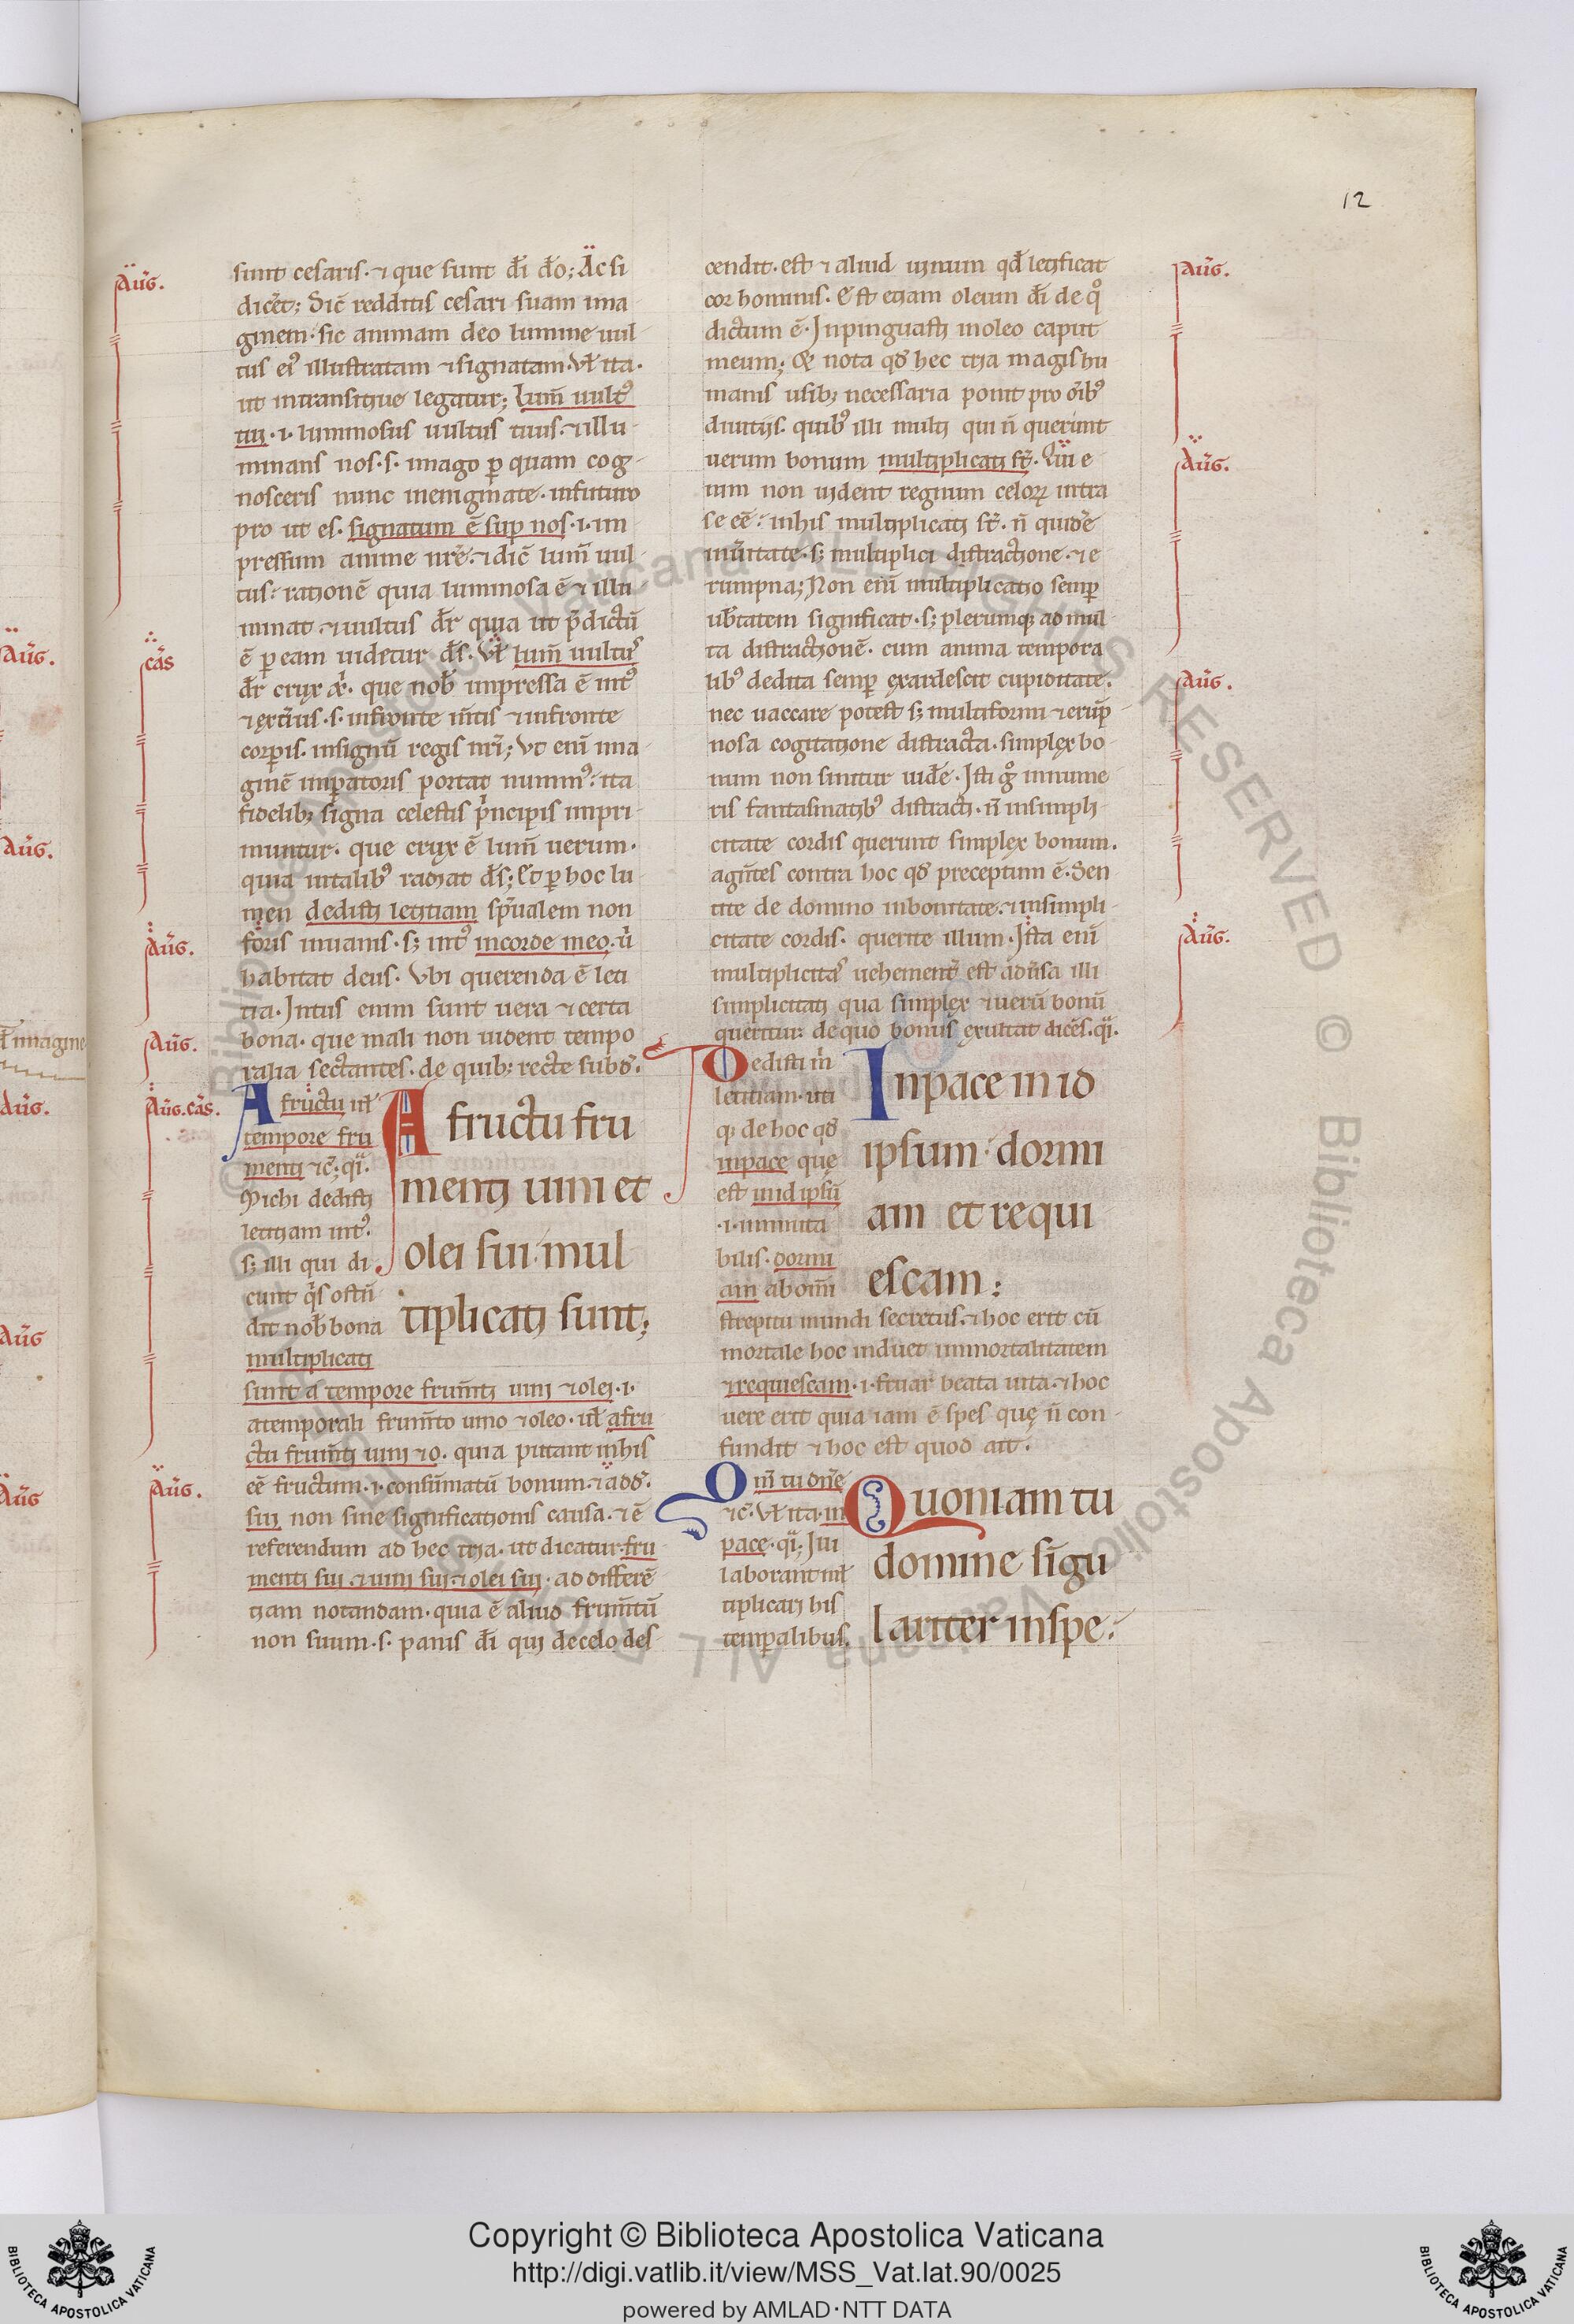 12
sunt cesaris. ⁊ que sunt dī dō; Ac si
dicēt; Sic̄ redditis cesari suam ima
ginem. sic animam deo lumine uul
tus eiꝰ illustratam ⁊ signatam. Vl̄ ita.
ut intransitiue legatur; Lum̄ uultꝰ
tui .i. luminosus uultus tuus. ⁊ illu
minans nos .s. imago ꝑ quam cog
nosceris nunc in enigmate. in futuro
pro ut es. signatum ē sup̄ nos .i. im
pressum anime nr̄e. ⁊ dic̄ lum̄ uul
tus. rationē quia luminosa ē ⁊ illu
minat. ⁊ uultus dr̄ quia ut p̄dictū
ē ꝑ eam uidetur ds̄. Vl̄ lum̄ uultꝰ
dr̄ crux xp̄i. que nob̄ impressa ē intꝰ
⁊ exteriꝰ .s. in fronte m̄tis ⁊ in fronte
corꝑis. insigniū regis nr̄i; Vt enī ima
ginē imꝑatoris portat nummꝰ. ita
fidelibꝫ signa celestis p̄ncipis impri
muntur. que crux ē lum̄ uerum.
quia in talibꝰ radiat ds̄; Et ꝑ hoc lu
men dedisti letitiam sp̄ualem non
foris inuanis. sꝫ intꝰ in corde meo. u̇
habitat deus. Vbi querenda ē leti
tia. Intus enim sunt uera ⁊ certa
bona. que mali non uident tempo
ralia sectantes. de quibꝫ recte subd̄.
A fructu ul̄
tempore fru
menti ⁊c̄; q̄.
Michi dedisti
letitiam intꝰ.
sꝫ illi qui di
cunt q̇s ostē
dit nob̄ bona
multiplicati
A fructu fru
menti uini et
olei sui mul
tiplicati sunt;
sunt a tempore frum̄ti uini ⁊ olei .i.
a temporali frum̄to uino ⁊ oleo. ul̄ a fru
ctu frum̄ti uini ⁊ o. quia putant in his
eē fructum .i. consūmatū bonum. ⁊ add̄.
sui non sine significationis causa. ⁊ ē
referendum ad hec tria. ut dicatur. fru
menti sui. ⁊ uini sui. ⁊ olei sui. ad differē
tiam notandam. quia ē aliud frum̄tū
non suum .s. panis dī qui de celo des
cendit. est ⁊ aliud uinum qd̄ letificat
cor hominis. Est etiam oleum dī de qͦ
dictum ē. Inpinguasti in oleo caput
meum; Et nota qd̄ hec tria magis hu
manis usibꝫ necessaria ponit pro oībꝰ
diuitiis. quibꝰ illi multi qui n̄ querunt
uerum bonum multiplicati st̄. Qui e
nim non uident regnum celoꝝ intra
se eē. in his multiplicati st̄. n̄ quidē
in ub̄tate. sꝫ multiplici distractione. ⁊ e
rumpna; Non enī multiplicatio semꝑ
ub̄tatem significat. sꝫ plerumqꝫ ad mul
ta distractionē. cum anima tempora
libꝰ dedita semꝑ exardescit cupiditate.
nec uaccare potest sꝫ multiformi ⁊ erūp
nosa cogitatione distracta. simplex bo
num non sinitur uidē. Isti gͦ innume
ris fantasmatibꝰ distracti. n̄ in simpli
citate cordis querunt simplex bonum.
agn̄tes contra hoc qd̄ preceptum ē. Sen
tite de domino in bonitate. ⁊ in simpli
citate cordis. querite illum. Ista enī
multiplicitaſ uehement̄ est aduersa illi
simplicitati qua simplex ⁊ uerū bonū
queritur. de quo bonus exultat dicēs. q̄.
Dedisti m̄
letitiam. uti
qꝫ de hoc qd̄
in pace que
est in id ipsū
.i. inmuta
bilis. dormi
am ab om̄i
In pace in id
ipsum. dormi
am et requi
escam:
strepitu mundi secretus. ⁊ hoc erit cū
mortale hoc induet inmortalitatem
⁊ requiescam .i. fruar beata uita. ⁊ hoc
uere erit quia iam ē spes que n̄ con
fundit ⁊ hoc est quod ait.
Qm̄ tu dn̄e
⁊c̄. Vl̄ ita. in
pace. q̄; Illi
laborant ml̄
tiplicati his
temꝑalibus.
Quoniam tu
domine singu
lariter in spe.
Aug.
Cas
Aug.
Aug.
Aug. cas.
Aug.
Aug.
Aug.
Aug.
Aug.
Aug.
Aug.
Aug.
Aug
Aug
Copyright © Biblioteca Apostolica Vaticana
http://digi.vatlib.it/view/MSS_Vat.lat.90/0025
powered by AMLAD·NTT DATA
BIBLIOTECA APOSTOLICA VATICANA
BIBLIOTECA APOSTOLICA VATICANA